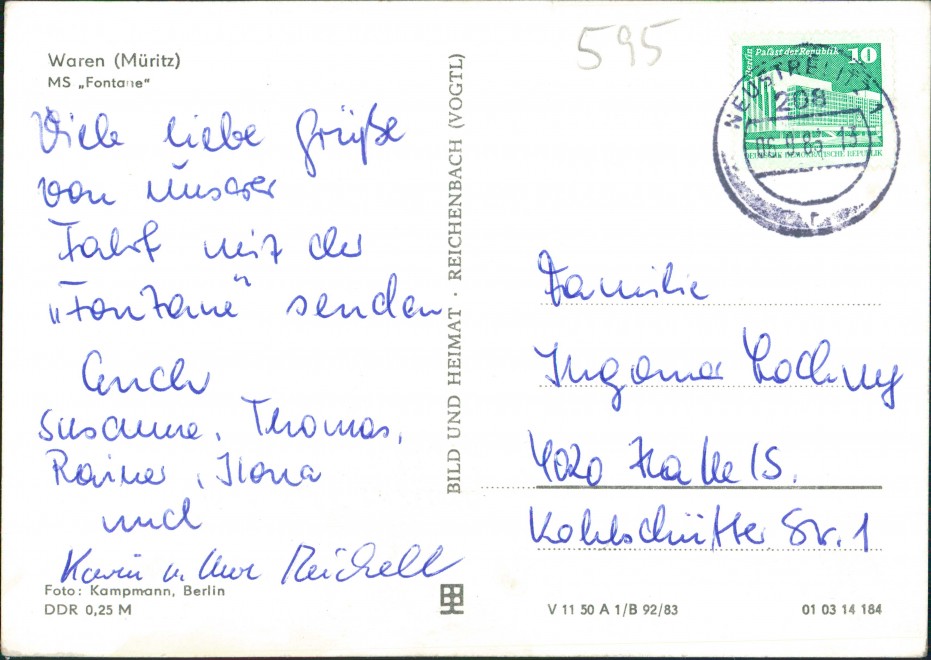 Waren (Müritz)
MS „Fontane"
Viele liebe Grüße
von unserer
Fahrt mit der
„Fontane" senden
Euch
Susanne, Thomas,
Rainer, Ilona
und
Karin u. Uwe
Foto: Kampmann, Berlin
DDR 0,25 M
BILD UND HEIMAT · REICHENBACH (VOGTL)
595
Berlin Palast der Republik 10
DEUTSCHE DEMOKRATISCHE REPUBLIK
NEUSTRELITZ 1
208
06.9.85 - 13
r
Familie
Ingomar
4020 Halle/S.
Kohlschütter Str. 1
V 11 50 A 1/B 92/83
01 03 14 184